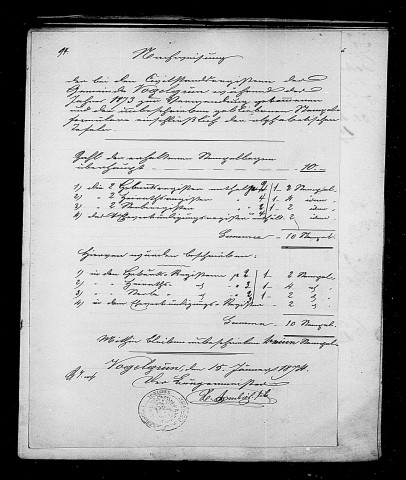 Nachweisung
der bei den Civilstandsregistern der
Gemeinde Vogelgrün während des
Jahres 1873 zur Verwendung gekommenen
und der unbeschrieben gebliebenen Stempel-
formulare einschließlich der alphabetischen
Tafeln.
Zahl der erhaltenen Stempelbogen
überhaupt 10.
1) die 2 Geburtsregister enthalten 2 1- 2 Stempel
2) " 2 Heirathsregister 4 1- 4 idem
3) " 2 Sterberegister 2 1- 2 idem
4) das Eheverkündigungsregister 2 idem
Summa 10 Stempel
Hiervon wurden beschrieben:
1) in den Geburts-Registern 2 1- 2 Stempel
2) " " Heiraths- " 4 1- 4 "
3) " " Sterbe- " 2 1- 2 "
4) in dem Eheverkündigungs-Register 2 "
Summa 10 Stempel
Mithin bleiben unbeschrieben Stempel
Vogelgrün, den 15. Januar 1874.
Der Bürgermeister